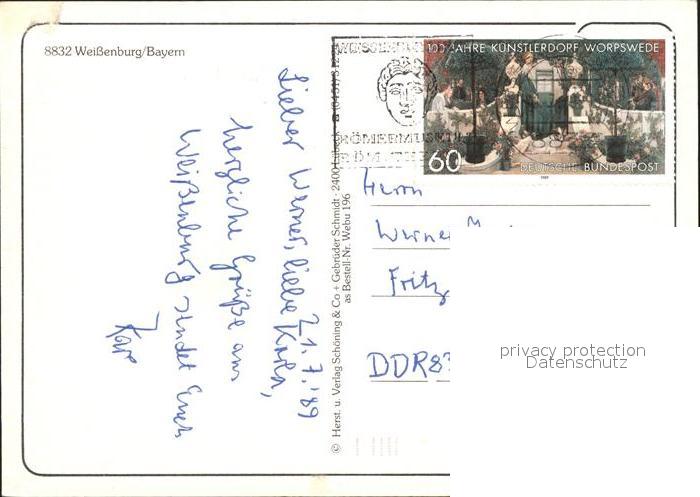 8832 Weißenburg/Bayern
100 JAHRE KÜNSTLERDORF WORPSWEDE
60
DEUTSCHE BUNDESPOST
1989
RÖMERMUSEUM
21.7.'89
Lieber Werner, liebe Karla,
herzliche Grüße aus
Weißenburg sendet Euch
© Herst. u. Verlag Schöning & Co + Gebrüder Schmidt · 2400 Lübeck
as Bestell-Nr. Webu 196
Herrn
Werner
Fritz
DDR 8
privacy protection
Datenschutz